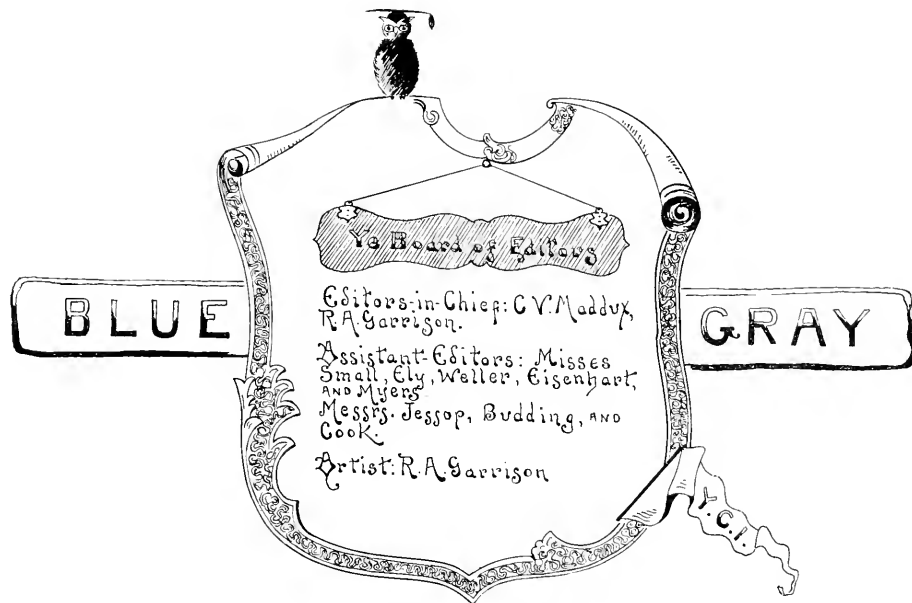 Ye Board of Editors
BLUE GRAY
Editors-in-Chief: C V. Maddux,
R.A. Garrison.
Assistant-Editors: Misses
Small, Ely, Weller, Eisenhart,
AND Myers
Messrs. Jessop, Budding, AND
Cook.
Artist: R.A. Garrison
Y.C.I.